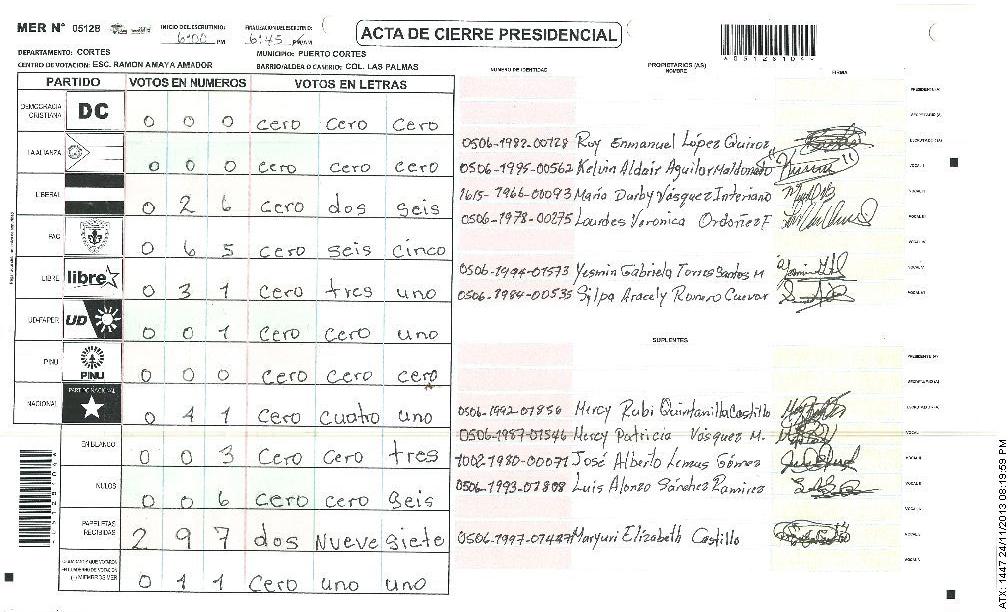 MER N° 05128 INICIO DEL ESCRUTINIO: 6:00 PM FINALIZACION DEL ESCRUTINIO: 6:45 PM ACTA DE CIERRE PRESIDENCIAL
DEPARTAMENTO: CORTES MUNICIPIO: PUERTO CORTES
CENTRO DE VOTACION: ESC. RAMON AMAYA AMADOR BARRIO/ALDEA O CASERIO: COL. LAS PALMAS
PARTIDO VOTOS EN NUMEROS VOTOS EN LETRAS
DEMOCRACIA CRISTIANA DC 0 0 0 cero cero cero
LA ALIANZA 0 0 0 cero cero cero
LIBERAL 0 2 6 cero dos seis
PAC 0 6 5 cero seis cinco
LIBRE libre 0 3 1 cero tres uno
UD-FAPER UD 0 0 1 cero cero uno
PINU PINU 0 0 0 cero cero cero
NACIONAL PARTIDO NACIONAL 0 4 1 cero cuatro uno
EN BLANCO 0 0 3 cero cero tres
NULOS 0 0 6 cero cero seis
PAPELETAS RECIBIDAS 2 9 7 dos nueve siete
MIEMBROS MER 0 1 1 cero uno uno
NUMERO DE IDENTIDAD PROPIETARIOS (AS) NOMBRE FIRMA
PRESIDENTE (A)
SECRETARIO (A)
0506-1982-00728 Roy Enmanuel López Quiroz ESCRUTADOR (A)
0506-1995-00562 Kelvin Aldair Aguilar Maldonado VOCAL I
1615-1966-00093 Mario Darby Vásquez Interiano VOCAL II
0506-1978-00275 Lourdes Veronica Ordoñez F VOCAL III
VOCAL IV
0506-1994-01573 Yesmin Gabriela Torres Santos M VOCAL V
0506-1984-00535 Silpa Aracely Romero Cuevar VOCAL VI
SUPLENTES
PRESIDENTE (A)
SECRETARIO (A)
0506-1992-01856 Mercy Rubi Quintanilla Castillo ESCRUTADOR (A)
0506-1987-01546 Mercy Patricia Vásquez M. VOCAL I
1002-1980-00071 José Alberto Lemus Gómez VOCAL II
0506-1993-01808 Luis Alonzo Sánchez Ramirez VOCAL III
VOCAL IV
Maryuri Elizabeth Castillo VOCAL V
ATX: 1447 24/11/2013 08:19:59 PM